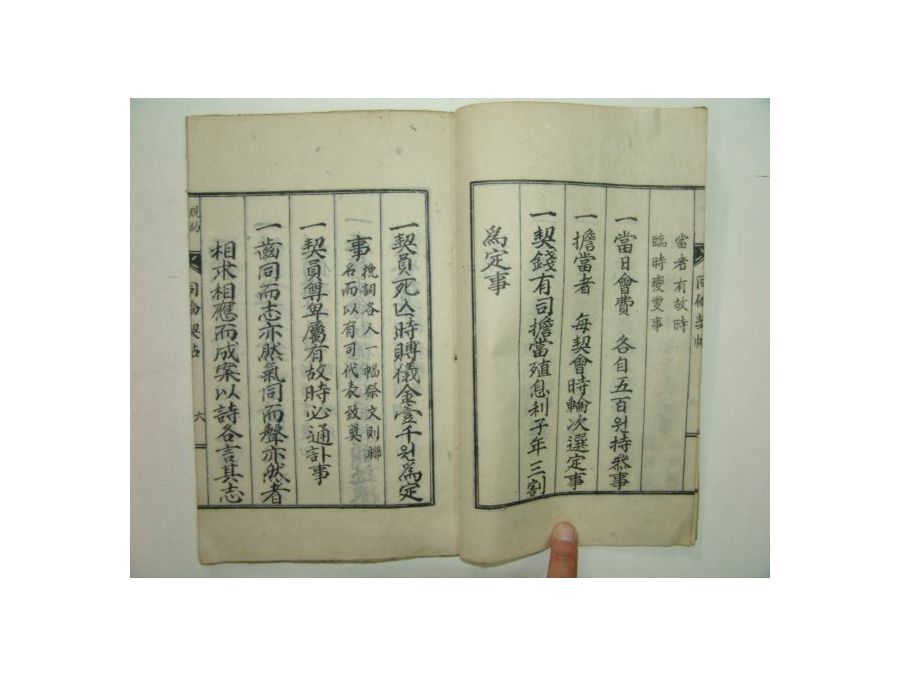 當者有故時
臨時變更事
一當日會費 各自五百원持參事
一擔當者 每契會時輪次選定事
一契錢有司擔當殖息利子年三割
爲定事
一契員死亡時賻儀金壹千원爲定
事 挽詞各人一幅祭文則聯
名而以有司代表致奠
一契員尊卑屬有故時必通訃事
一齒同而志亦然氣同而聲亦然者
相求相應而成案以詩各言其志
規約
同倫契帖
六